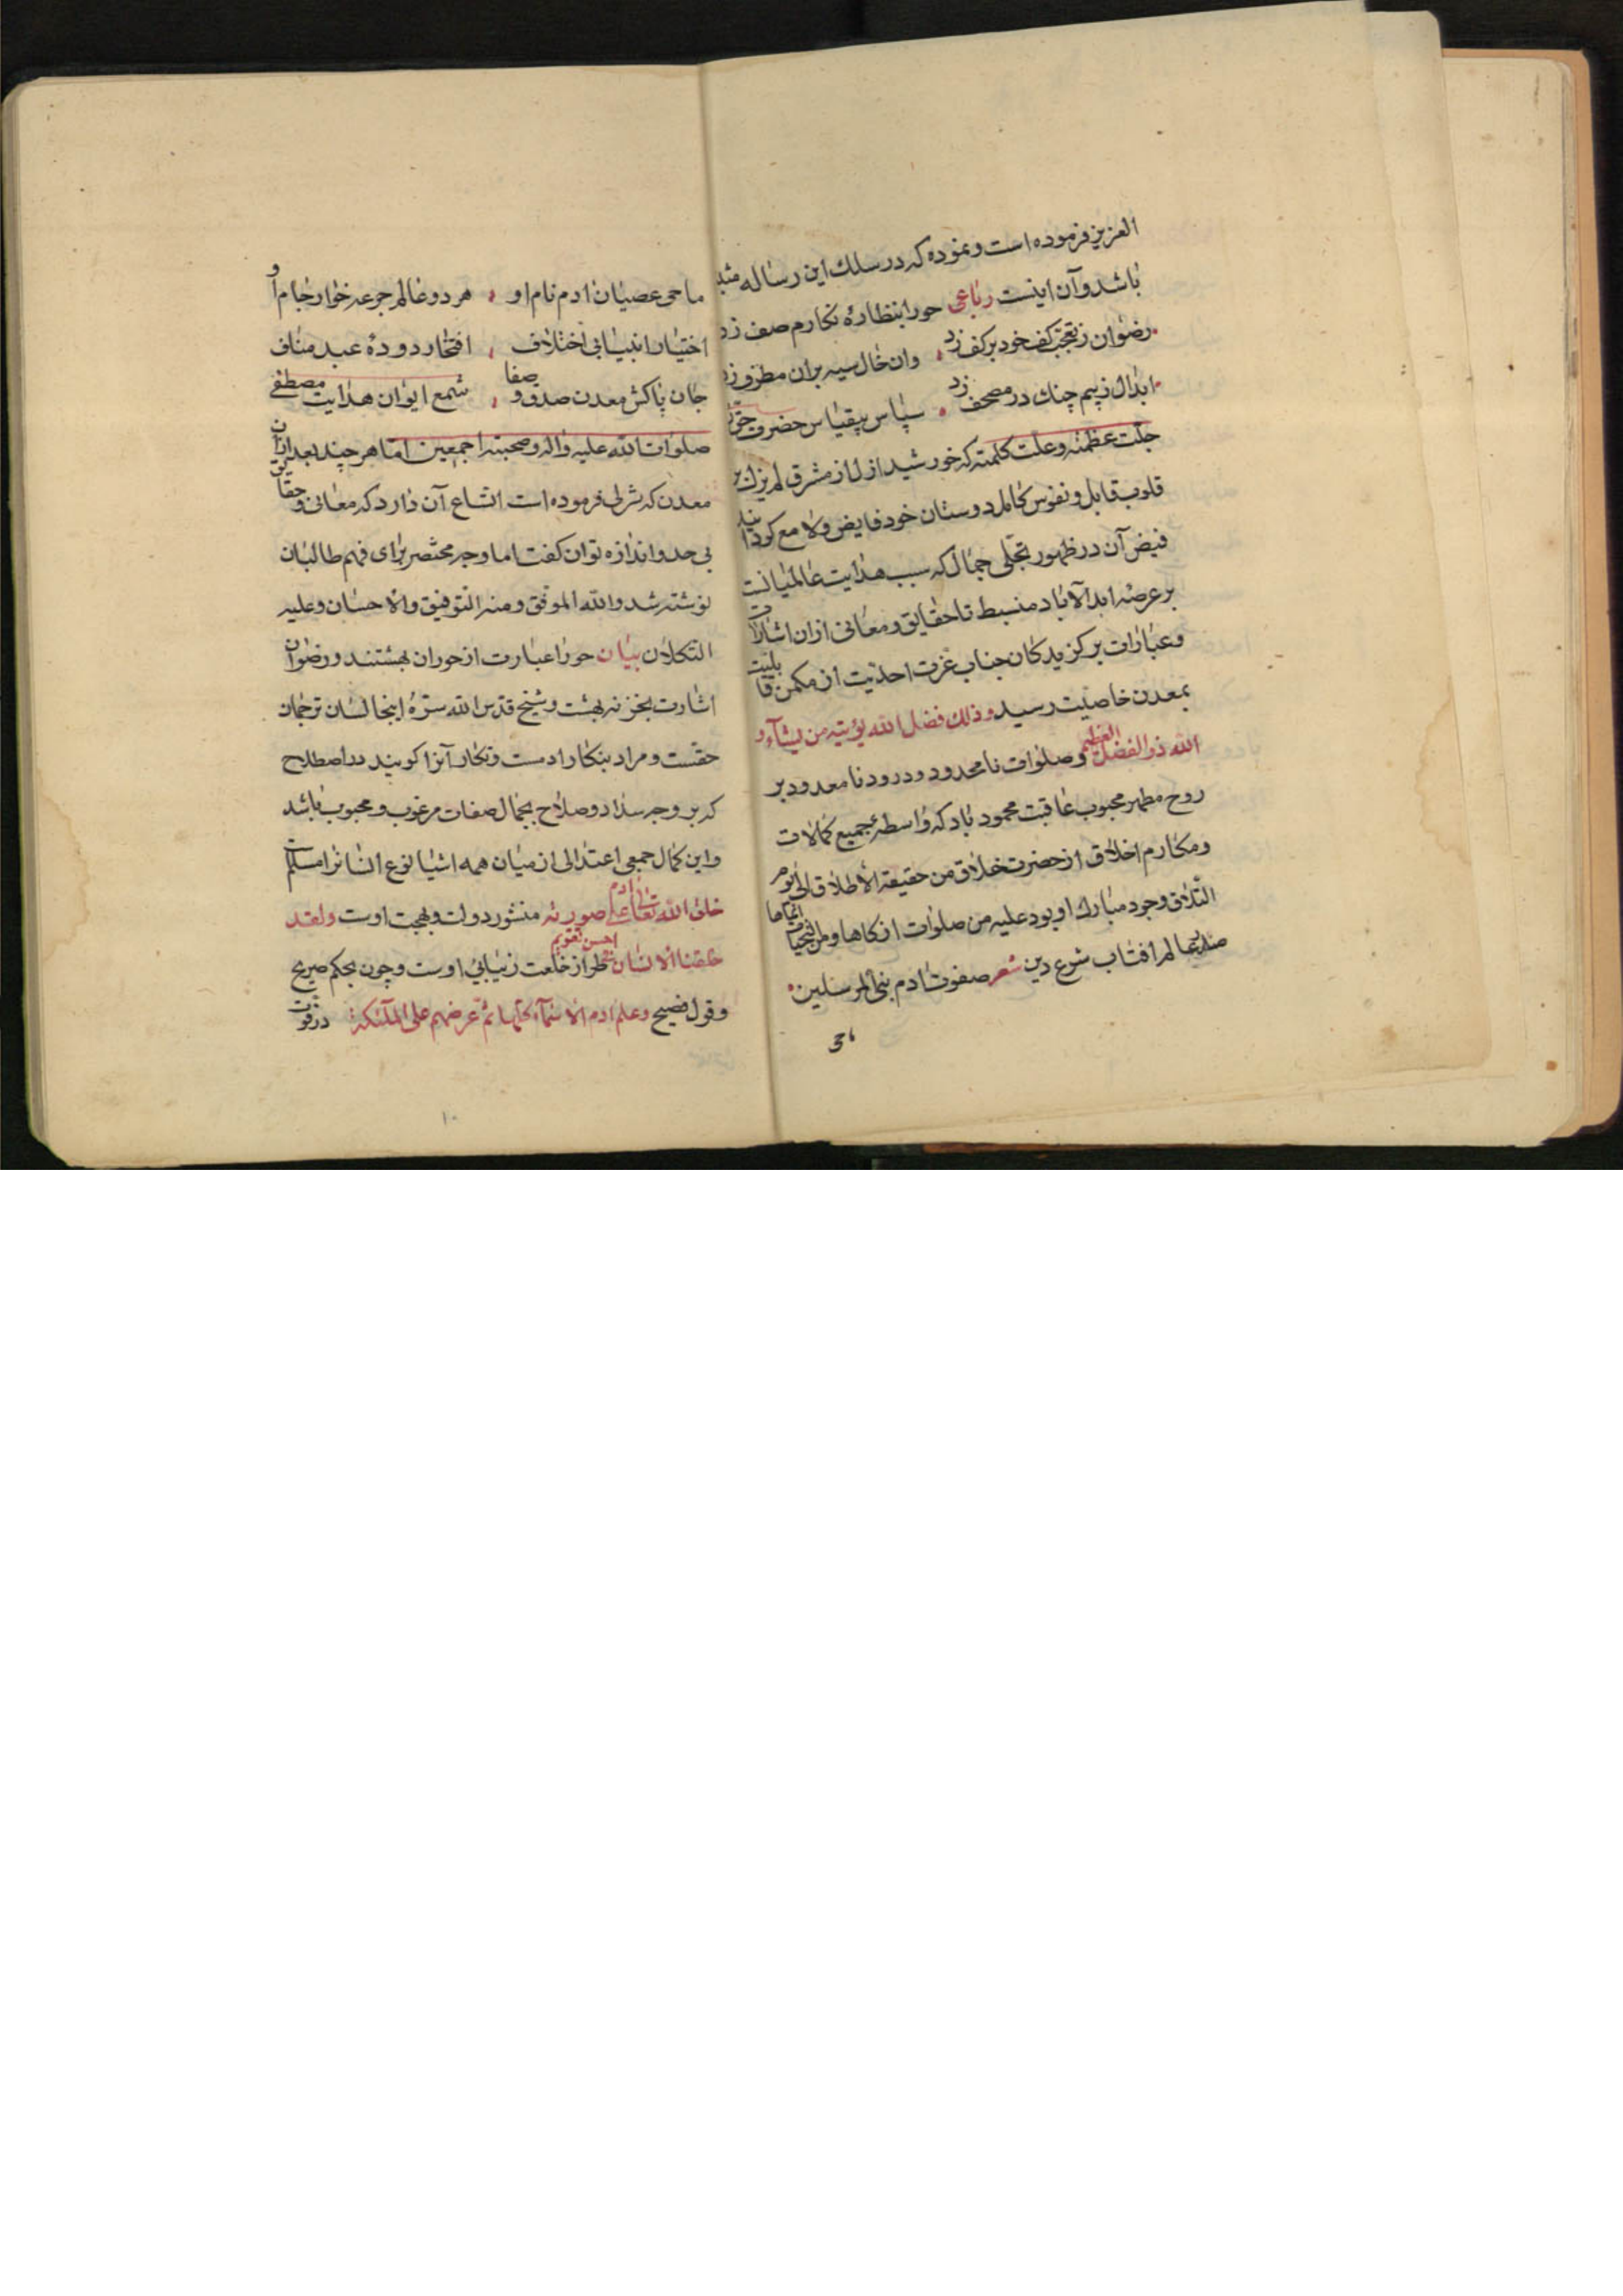 العزیز فرموده است و نموده که در سلك این رساله مثبت
باشد و آن اینست رباعی حورا بنظارهٔ نکارم صف زد
رضوان ز تعجب کف خود بر کف زد وان خال سیه بران مطرف زد
ابدال ز بیم چنك در مصحف زد سپاس بیقیاس حضرت
جلت عظمته وعلت کلمته که خورشید ازل از مشرق لم یزل بر
قلوب قابل و نفوس کامل دوستان خود فایض ولامع
فیض آن در ظهور تجلی جمال که سبب هدایت عالمیانست
بر عرصه ابد الآباد منبسط تا حقایق و معانی ازان اشارات
وعبارات برکزیدکان جناب عزت احدیت از مکمن قابلیت
بمعدن خاصیت رسید وذلك فضل الله یؤتیه من یشآء و
الله ذو الفضل العظیم و صلوات نامحدود و درود نامعدود بر
روح مطهر محبوب عاقبت محمود باد که واسطهٔ جمیع کمالات
ومکارم اخلاق از حضرت خلاق من حقیقة الاطلاق الی یوم
التلاق وجود مبارك او بود علیه من صلوات ازکاها ومن التحیات انماها
عالم افتاب شرع دین شعر صفوت ادم نبی المرسلین
ماحی عصیان ادم نام او هر دو عالم جرعه خوار جام او
اختیار انبیا بی اختلاف افتخار دودهٔ عبد مناف
جان پاکش معدن صدق و صفا شمع ایوان هدایت مصطفی
صلوات الله علیه واله وصحبته اجمعین اما هر چند بعد ازان
معدن که شرلی فرموده است اتساع آن دارد که معانی و حقایق
بی حد و اندازه توان کفت اما وجه مختصر برای فهم طالبان
نوشته شد والله الموفق ومنه التوفیق والاحسان وعلیه
التکلان بیان حورا عبارت از حوران بهشتند و رضوان
اشارت بخزنه بهشت و شیخ قدس الله سره اینجا لسان ترجمان
حقست و مراد بنکار ادمست و نکار آنرا کویند در اصطلاح
که بر وجه سداد و صلاح بجمال صفات مرغوب و محبوب باشد
واین کمال جمعی اعتدالی از میان همه اشیا نوع انسانرا مسلم
خلق الله تعالی ادم علی صورته منشور دولت و بهجت اوست ولقد
خلقنا الانسان فی احسن تقویم طراز خلعت زیبایی اوست و چون بحکم صریح
وقول فصیح وعلم ادم الاسمآء کلها ثم عرضهم علی الملآئکة در قوت
۱۰